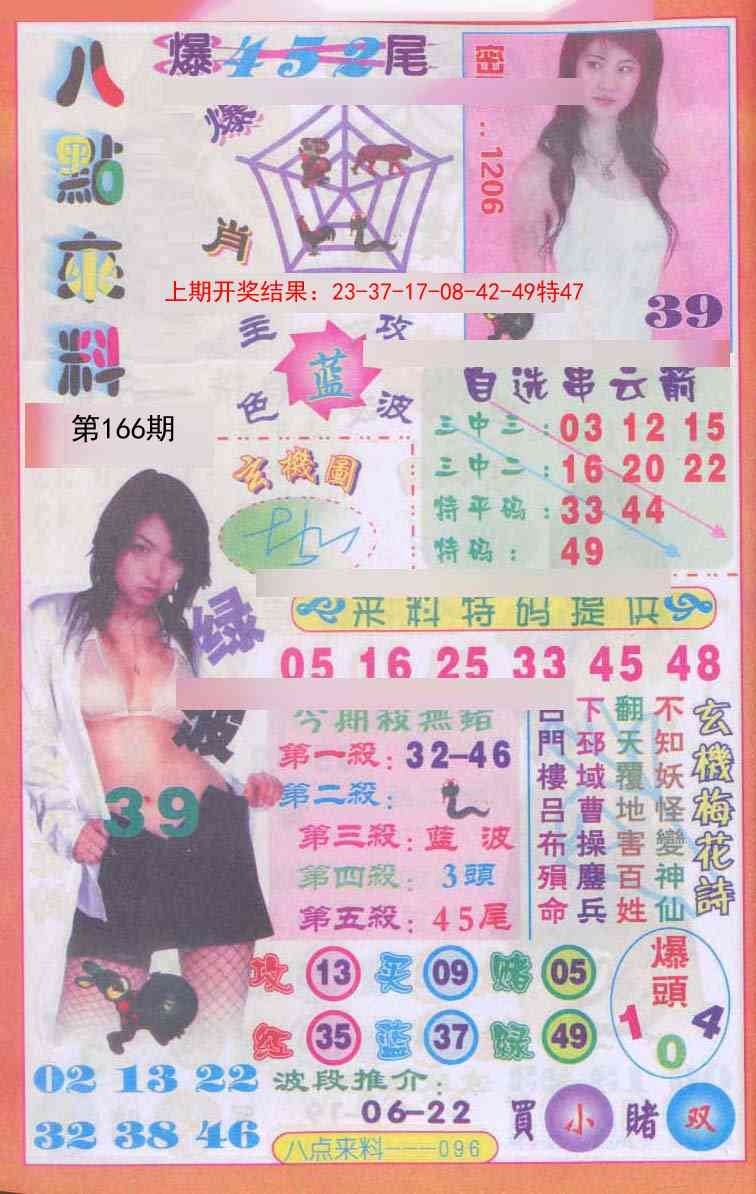 八點來料
爆452尾
爆肖
1206
39
上期开奖结果：23-37-17-08-42-49特47
主攻
蓝
色波
第166期
自选串云箭
三中三：03 12 15
三中二：16 20 22
特平码：33 44
特码：49
玄機圖
来料特码提供
05 16 25 33 45 48
绿波
39
今期殺無錯
第一殺：32-46
第二殺：
第三殺：蓝 波
第四殺：3頭
第五殺：45尾
玄機梅花詩
不知妖怪變神仙
翻天覆地害百姓
下邳域曹操鏖兵
門樓呂布殞命
攻 13 买 09 赌 05
红 35 蓝 37 绿 49
爆頭
1 0 4
02 13 22
32 38 46
波段推介：
06-22
買小賭双
八点来料---096